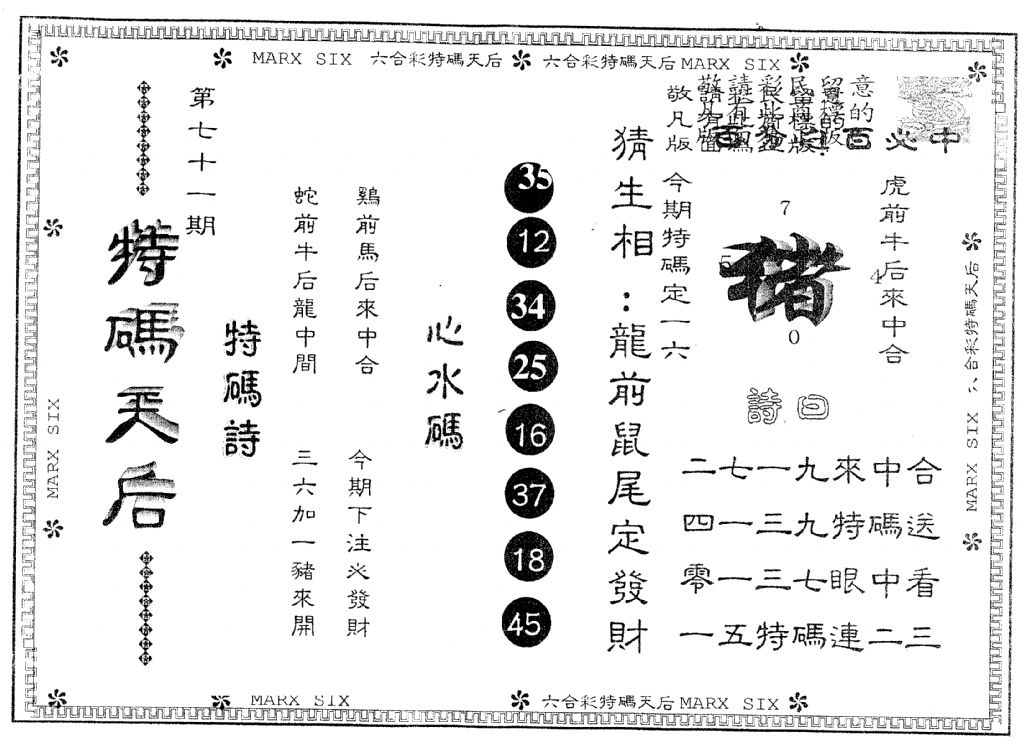 MARX SIX 六合彩特碼天后
六合彩特碼天后 MARX SIX
第七十一期
特碼天后
特碼詩
鷄前馬后來中合
蛇前牛后龍中間
今期下注必發財
三六加一豬來開
心水碼
35
12
34
25
16
37
18
45
猜生相：龍前鼠尾定發財
敬凡版
意的
中必
今期特碼定一六
虎前牛后來中合
7
5
豬
4
0
詩曰
二七一九來中合
四一三九特碼送
零一三七眼中看
一五特碼連二三
MARX SIX
MARX SIX 六合彩特碼天后
MARX SIX
六合彩特碼天后 MARX SIX